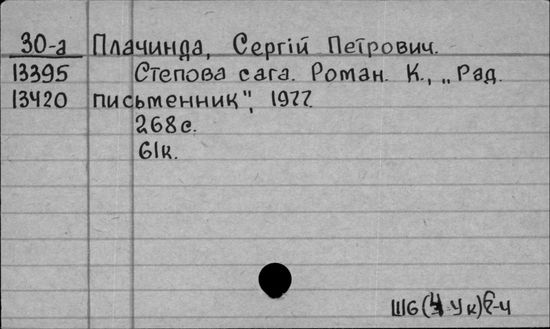 30-а Плачинда, Сергій Петрович.
13395 Степова сага. Роман. К., „Рад.
13420 письменник", 1977.
268с.
61к.
Ш6(4Ук)6-4